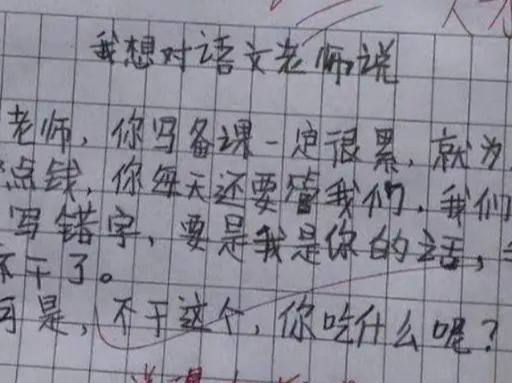 我想对语文老师说
老师，你写备课一定很累，就为
点钱，你每天还要管我们，我们
写错字，要是我是你的话，
不干了。
可是，不干这个，你吃什么呢？